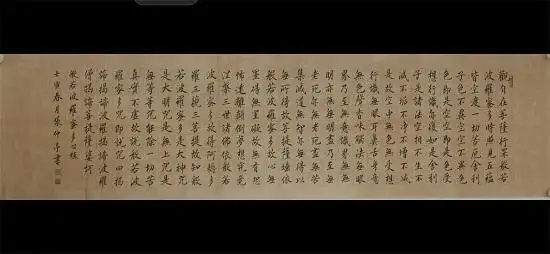 觀自在菩薩行深般若
波羅蜜多時照見五蘊
皆空度一切苦厄舍利
子色不異空空不異色
色即是空空即是色受
想行識亦復如是舍利
子是諸法空相不生不
滅不垢不淨不增不減
是故空中無色無受想
行識無眼耳鼻舌身意
無色聲香味觸法無眼
界乃至無意識界無無
明亦無無明盡乃至無
老死亦無老死盡無苦
集滅道無智亦無得以
無所得故菩提薩埵依
般若波羅蜜多故心無
罣礙無罣礙故無有恐
怖遠離顛倒夢想究竟
涅槃三世諸佛依般若
波羅蜜多故得阿耨多
羅三藐三菩提故知般
若波羅蜜多是大神咒
是大明咒是無上咒是
無等等咒能除一切苦
真實不虛故說般若波
羅蜜多咒即說咒曰揭
諦揭諦波羅揭諦波羅
僧揭諦菩提薩婆訶
般若波羅蜜多心經
壬寅春月仲亭書